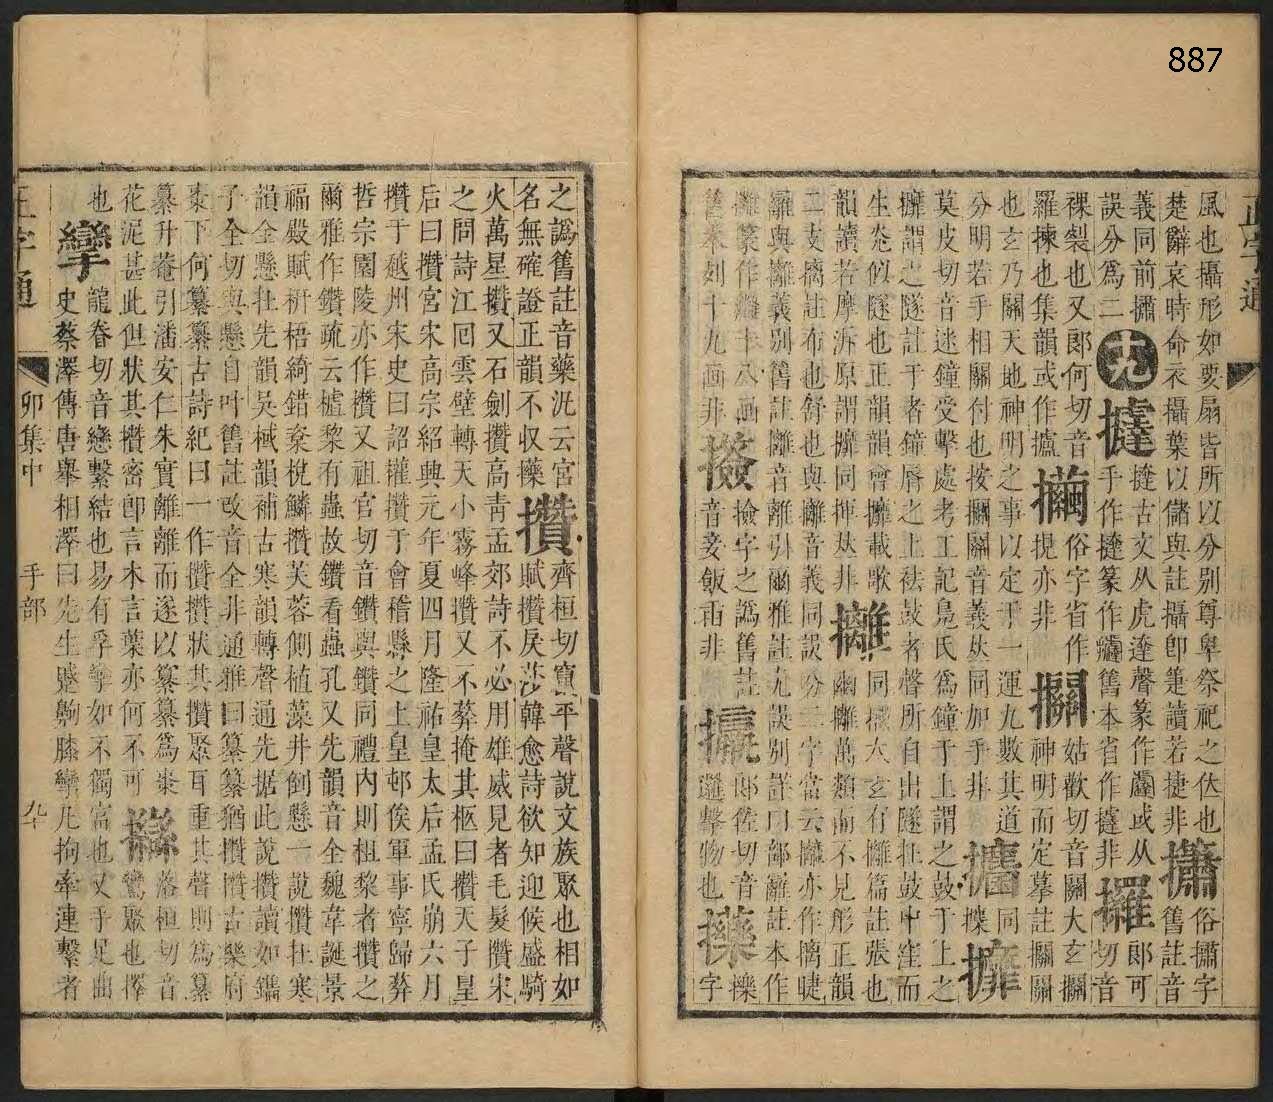 887
正字通
風也攝形如要扇皆所以分别尊卑祭祀之佽也
楚辭哀時命衣攝葉以儲與註攝卽箑讀若捷非㩋俗擶字舊註音
義同前擶
誤分爲二 十九 㩉㨗古文从虎逹聲篆作或从手作㨗篆作舊本省作㩉非 攞郎可切音
裸裂也又郎何切音
羅揀也集韻或作攎 㩐俗字省作挸亦非 𢺄姑歡切音關大玄𢺄神明而定摹註𢺄關
也玄乃關天地神明之事以定于一運九數其道
分明若手相關付也按𢺄關音義𠀤同加手非 㩴同擛 攠
莫皮切音迷鐘受擊處考工記鳧氏爲鐘于上謂之鼓于上之
攠謂之隧註于者鐘脣之上袪鼓者聲所自出隧在鼓中窪而
生光似隧也正韻韻會攠載歌
韻讀若摩泝原謂攠同挕𠀤非 攡同摛太玄有攡篇註張也幽攡萬類而不見形正韻
二支摛註布也舒也與攡音義同誤分二字當云攡亦作摛睫
離與攡義别舊註攡音離引爾雅註尢誤别詳曰部離註本作
攡篆作十八画
舊本列十九画非 㩎音妾飯臿非撿字之譌舊註 㩡郎佐切音邏擊物也 㩰擽字
之譌舊註音藥汎云宮
名無確證正韻不収㩰 攢齊桓切竄平聲說文族聚也相如賦攢戾莎韓愈詩欲知迎候盛騎
火萬星攢又石劍攢高靑孟郊詩不必用雄威見者毛髮攢宋
之問詩江回雲壁轉天小霧峰攢又不葬掩其柩曰攢天子皇
后曰攢宮宋高宗紹興元年夏四月隆祐皇太后孟氏崩六月
攢于越州宋史曰詔權攢于會稽縣之上皇邨俟軍事寧歸葬
哲宗園陵亦作攢又祖官切音鑽與鑽同禮內則柤黎者攢之
爾雅作鑽疏云樝黎有蟲故鑽看蟲孔又先韻音全魏韋誕景
福殿賦枅梧綺錯楶梲鱗攢芙蓉側植藻井倒懸一說攢在寒
韻全懸在先韻吳棫韻補古寒韻轉聲通先据此說攢讀如鑴
子全切與懸自叶舊註改音全非通雅曰纂纂猶攢攢古樂府
棗下何纂纂古詩紀曰一作攢攢狀其攢聚耳重其聲則為纂
纂升菴引潘安仁朱實離離而遂以纂纂爲棗
花泥甚此但狀其攢密卽言木言葉亦何不可 㩯落桓切音鸞聚也擇
也 攣龍眷切音戀繫結也易有孚攣如不獨富也又手足曲
史蔡澤傳唐舉相澤曰先生蹙齃膝攣凡拘牽連繫者
正字通
卯集中
手部
九十